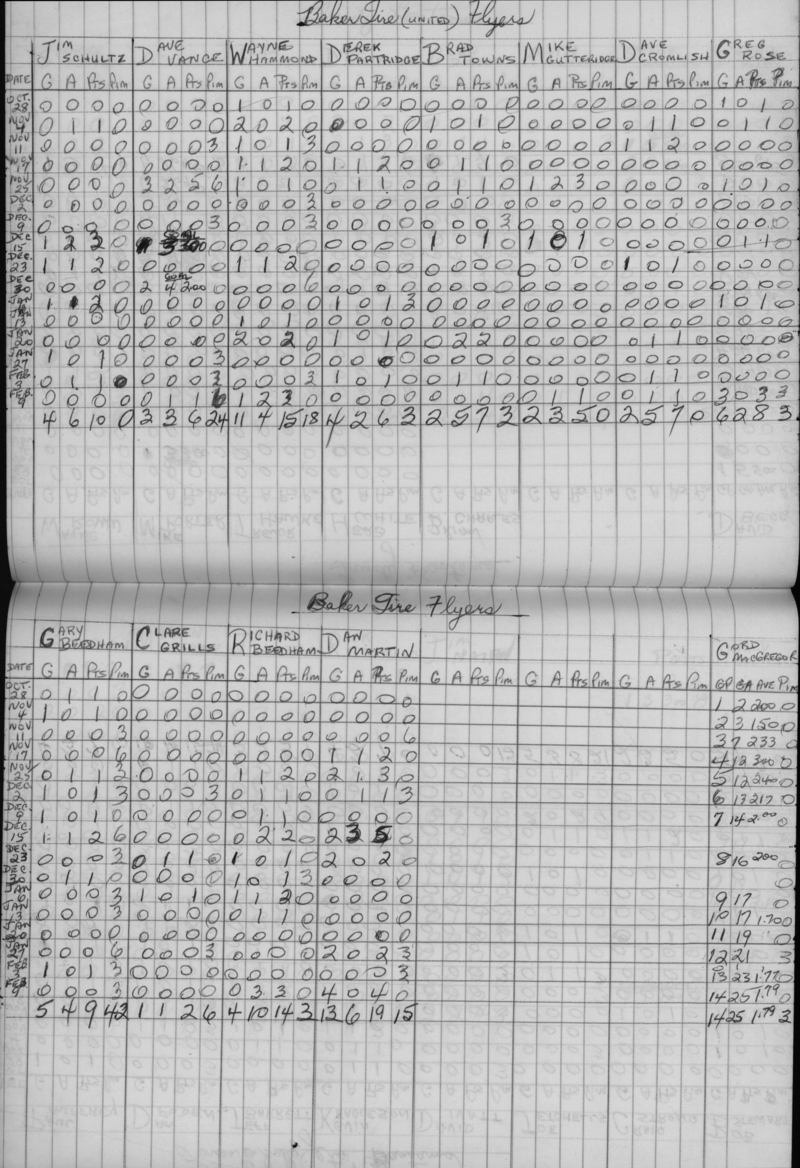 Baker Tire (UNITED) Flyers
JIM SCHULTZ DAVE VANCE WAYNE HAMMOND DEREK PARTRIDGE BRAD TOWNS MIKE GUTTERIDGE DAVE CROMLISH GREG ROSE
DATE G A Pts Pim G A Pts Pim G A Pts Pim G A Pts Pim G A Pts Pim G A Pts Pim G A Pts Pim G A Pts Pim
OCT. 28 0 0 0 0 0 0 0 0 1 0 1 0 0 0 0 0 0 0 0 0 0 0 0 0 0 0 0 0 1 0 1 0
NOV 4 0 1 1 0 0 0 0 0 2 0 2 0 0 0 0 0 1 0 1 0 0 0 0 0 0 1 1 0 0 1 1 0
NOV 11 0 0 0 0 0 0 0 3 1 0 1 3 0 0 0 0 0 0 0 0 0 0 0 0 1 1 2 0 0 0 0 0
NOV 17 0 0 0 0 0 0 0 0 1 1 2 0 1 1 2 0 0 1 1 0 0 0 0 0 0 0 0 0 0 0 0 0
NOV 25 0 0 0 0 3 2 5 6 1 0 1 0 0 1 1 0 0 1 1 0 1 2 3 0 0 0 0 0 1 0 1 0
DEC 2 0 0 0 0 0 0 0 0 0 0 0 3 0 0 0 0 0 0 0 0 0 0 0 0 0 0 0 0 0 0 0 0
DEC. 9 0 0 0 0 0 0 0 3 0 0 0 3 0 0 0 0 0 0 0 3 0 0 0 0 0 0 0 0 0 0 0 0
DEC 15 1 2 3 0 0 0 0 0 0 0 0 0 1 0 1 0 1 0 1 0 0 0 0 0 0 1 1 0
DEC. 23 1 1 2 0 0 0 0 0 1 1 2 0 0 0 0 0 0 0 0 0 0 0 0 0 1 0 1 0 0 0 0 0
DEC 30 0 0 0 0 2 4 2.00 0 0 0 6 0 0 0 0 0 0 0 0 0 0 0 0 0 0 0 0 0 0 0 0
JAN 6 1 1 2 0 0 0 0 0 0 0 0 0 1 0 1 3 0 0 0 0 0 0 0 0 0 0 0 0 1 0 1 0
JAN 13 0 0 0 0 0 0 0 0 1 0 1 0 0 0 0 0 0 0 0 0 0 0 0 0 0 0 0 0 0 0 0 0
JAN 20 0 0 0 0 0 0 0 0 2 0 2 0 1 0 1 0 0 2 2 0 0 0 0 0 0 1 1 0 0 0 0 0
JAN 27 1 0 1 0 0 0 0 3 0 0 0 0 0 0 0 0 0 0 0 0 0 0 0 0 0 0 0 0 0 0 0 0
FEB 3 0 1 1 0 0 0 0 3 0 0 0 3 1 0 1 0 0 1 1 0 0 0 0 0 0 1 1 0 0 0 0 0
FEB. 9 0 0 0 0 0 1 1 6 1 2 3 0 0 0 0 0 0 0 0 0 0 1 1 0 0 1 1 0 3 0 3 3
4 6 10 0 3 3 6 24 11 4 15 18 4 2 6 3 2 5 7 3 2 3 5 0 2 5 7 0 6 2 8 3
Baker Tire Flyers
GARY BEEDHAM CLARE GRILLS RICHARD BEEDHAM DAN MARTIN GORD MCGREGOR
DATE G A Pts Pim G A Pts Pim G A Pts Pim G A Pts Pim G A Pts Pim G A Pts Pim G A Pts Pim GP GA AVE Pim
OCT. 28 0 1 1 0 0 0 0 0 0 0 0 0 0 0 0 0 1 2 2.00 0
NOV 4 1 0 1 0 0 0 0 0 0 0 0 0 0 0 0 0 2 3 1.50 0
NOV 11 0 0 0 3 0 0 0 0 0 0 0 0 0 0 0 6 3 7 2.33 0
NOV 17 0 0 0 6 0 0 0 0 0 0 0 0 1 1 2 0 4 12 3.00 0
NOV 25 0 1 1 3 0 0 0 0 1 1 2 0 2 1 3 0 5 12 2.40 0
DEC 2 1 0 1 3 0 0 0 3 0 1 1 0 0 1 1 3 6 13 2.17 0
DEC. 9 1 0 1 0 0 0 0 0 0 1 1 0 0 0 0 0 7 14 2.00 0
DEC 15 1 1 2 6 0 0 0 0 0 2 2 0 2 3 5 0
DEC. 23 0 0 0 3 0 1 1 0 1 0 1 0 2 0 2 0 8 16 2.00 0
DEC 30 0 1 1 0 0 0 0 0 1 0 1 3 0 0 0 0 0
JAN 6 0 0 0 3 1 0 1 0 1 1 2 0 0 0 0 0 9 17 0
JAN 13 0 0 0 3 0 0 0 0 0 1 1 0 0 0 0 0 10 17 1.70 0
JAN 20 0 0 0 0 0 0 0 0 0 0 0 0 0 0 0 0 11 19 0
JAN 27 0 0 0 6 0 0 0 3 0 0 0 0 2 0 2 3 12 21 3
FEB 3 1 0 1 3 0 0 0 0 0 0 0 0 0 0 0 3 13 23 1.77 0
FEB. 9 0 0 0 3 0 0 0 0 0 3 3 0 4 0 4 0 14 25 1.79 0
5 4 9 42 1 1 2 6 4 10 14 3 13 6 19 15 14 25 1.79 3